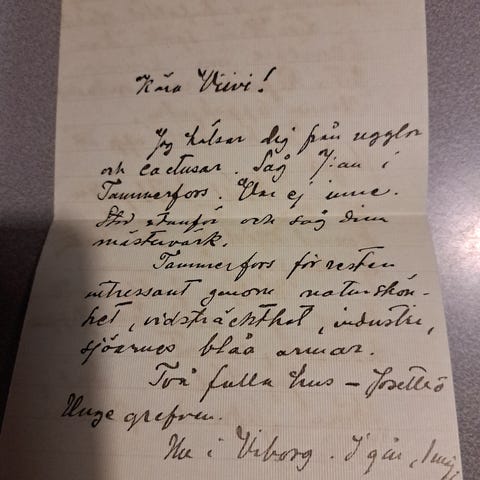 Kära Viivi!
Jag hälsar dig från ugglor
och cactusar. Såg 7:an i
Tammerfors. Var ej inne.
Stod utanför och såg dina
mästervärk.
Tammerfors för resten
intressant genom naturskön-
het, vidsträckthet, industri,
sjöarnas blåa armar.
Två fulla hus –
Unge grefven.
Nu i Viborg. I går